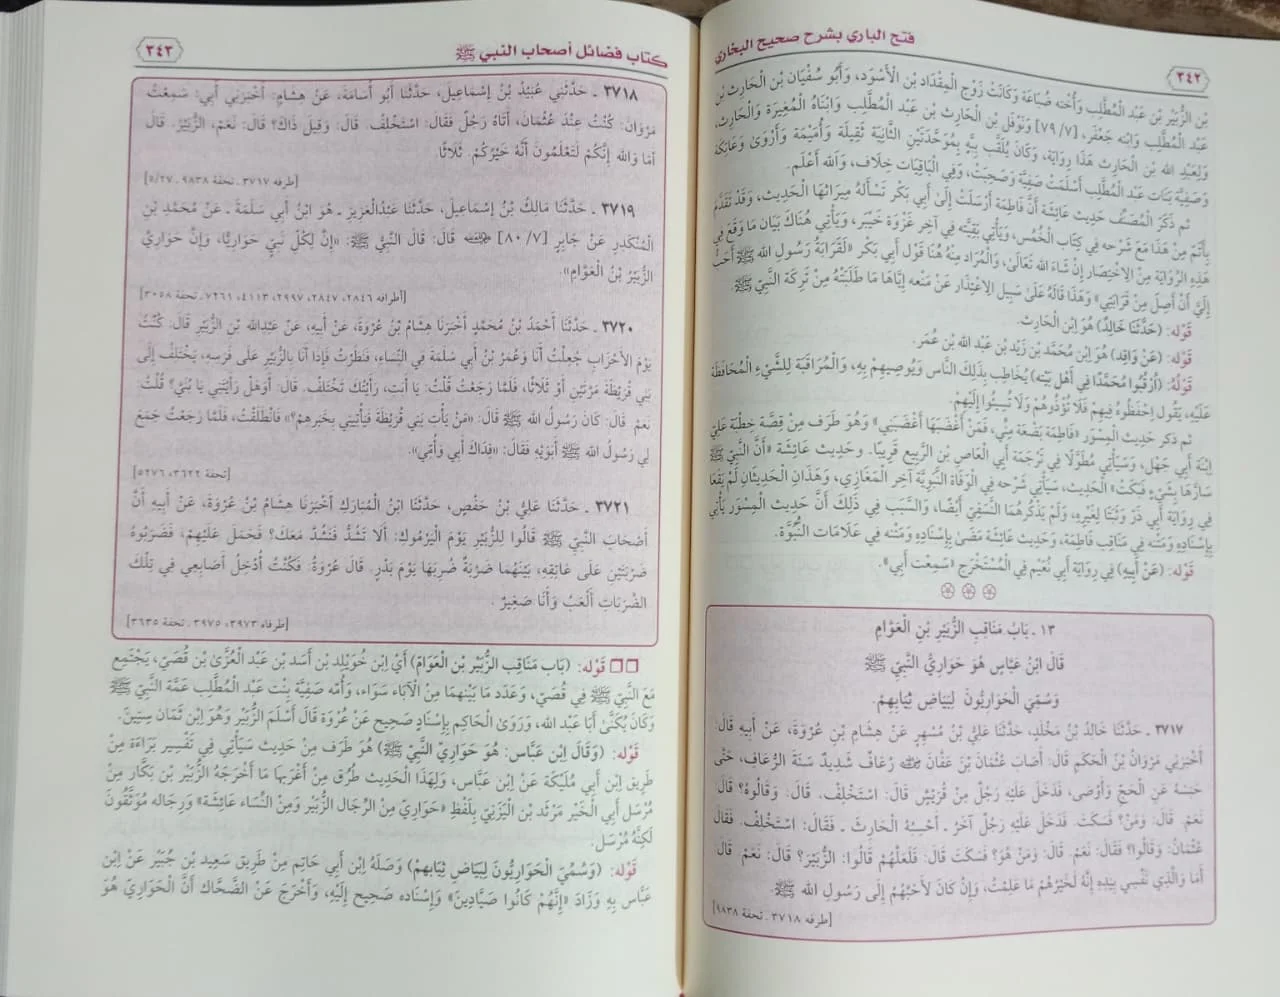 فتح الباري بشرح صحيح البخاري
٣٤٢
بْنِ الزُّبَيْرِ بْنِ عَبْدِ الْمُطَّلِبِ وَأُخْتِهِ ضُبَاعَةَ وَكَانَتْ زَوْجَ الْمِقْدَادِ بْنِ الْأَسْوَدِ، وَأَبُو سُفْيَانَ بْنِ الْحَارِثِ بْنِ
عَبْدِ الْمُطَّلِبِ وَابْنِهِ جَعْفَرَ، [٧٩/٧] وَنَوْفَلِ بْنِ الْحَارِثِ بْنِ عَبْدِ الْمُطَّلِبِ وَابْنَاهُ الْمُغِيرَةَ وَالْحَارِثِ،
وَلِعَبْدِ اللَّهِ بْنِ الْحَارِثِ هَذَا رِوَايَةٌ، وَكَانَ يُلَقَّبُ بَبَّهْ بِمُوَحَّدَتَيْنِ الثَّانِيَةُ ثَقِيلَةٌ وَأُمَيْمَةَ وَأَرْوَى وَعَاتِكَةَ
وَصَفِيَّةَ بَنَاتِ عَبْدِ الْمُطَّلِبِ أَسْلَمَتْ صَفِيَّةُ وَصَحِبَتْ، وَفِي الْبَاقِيَاتِ خِلَافٌ، وَاللَّهُ أَعْلَمُ.
ثُمَّ ذَكَرَ الْمُصَنِّفُ حَدِيثَ عَائِشَةَ أَنَّ فَاطِمَةَ أَرْسَلَتْ إِلَى أَبِي بَكْرٍ تَسْأَلُهُ مِيرَاثَهَا الْحَدِيثَ، وَقَدْ تَقَدَّمَ
بِأَتَمَّ مِنْ هَذَا مَعَ شَرْحِهِ فِي كِتَابِ الْخُمُسِ، وَيَأْتِي بَقِيَّتُهُ فِي آخِرِ غَزْوَةِ خَيْبَرَ، وَيَأْتِي هُنَاكَ بَيَانُ مَا وَقَعَ فِي
هَذِهِ الرِّوَايَةِ مِنْ الِاخْتِصَارِ إِنْ شَاءَ اللَّهُ تَعَالَى، وَالْمُرَادُ مِنْهُ هُنَا قَوْلُ أَبِي بَكْرٍ «لَقَرَابَةُ رَسُولِ اللَّهِ ﷺ أَحَبُّ
إِلَيَّ أَنْ أَصِلَ مِنْ قَرَابَتِي» وَهَذَا قَالَهُ عَلَى سَبِيلِ الِاعْتِذَارِ عَنْ مَنْعِهِ إِيَّاهَا مَا طَلَبَتْهُ مِنْ تَرِكَةِ النَّبِيِّ ﷺ.
قَوْلُه: (حَدَّثَنَا خَالِدٌ) هُوَ ابْنُ الْحَارِثِ.
قَوْلُه: (عَنْ وَاقِدٍ) هُوَ ابْنُ مُحَمَّدِ بْنِ زَيْدِ بْنِ عَبْدِ اللَّهِ بْنِ عُمَرَ.
قَوْلُهُ: (ارْقُبُوا مُحَمَّدًا فِي أَهْلِ بَيْتِهِ) يُخَاطِبُ بِذَلِكَ النَّاسَ وَيُوصِيهِمْ بِهِ، وَالْمُرَاقَبَةُ لِلشَّيْءِ الْمُحَافَظَةُ
عَلَيْهِ، يَقُولُ احْفَظُوهُ فِيهِمْ فَلَا تُؤْذُوهُمْ وَلَا تُسِيئُوا إِلَيْهِمْ.
ثم ذكر حَدِيثَ الْمِسْوَرِ «فَاطِمَةُ بَضْعَةٌ مِنِّي، فَمَنْ أَغْضَبَهَا أَغْضَبَنِي» وَهُوَ طَرَفٌ مِنْ قِصَّةِ خِطْبَةِ عَلِيٍّ
ابْنَةَ أَبِي جَهْلٍ، وَسَيَأْتِي مُطَوَّلًا فِي تَرْجَمَةِ أَبِي الْعَاصِ بْنِ الرَّبِيعِ قَرِيبًا. وَحَدِيثَ عَائِشَةَ «أَنَّ النَّبِيَّ ﷺ
سَارَّهَا بِشَيْءٍ فَبَكَتْ» الْحَدِيثَ، سَيَأْتِي شَرْحُهُ فِي الْوَفَاةِ النَّبَوِيَّةِ آخِرَ الْمَغَازِي، وَهَذَانِ الْحَدِيثَانِ لَمْ يَقَعَا
فِي رِوَايَةِ أَبِي ذَرٍّ وَثَبَتَا لِغَيْرِهِ، وَلَمْ يَذْكُرْهُمَا النَّسَفِيُّ أَيْضًا، وَالسَّبَبُ فِي ذَلِكَ أَنَّ حَدِيثَ الْمِسْوَرِ يَأْتِي
بِإِسْنَادِهِ وَمَتْنِهِ فِي مَنَاقِبِ فَاطِمَةَ، وَحَدِيثَ عَائِشَةَ مَضَى بِإِسْنَادِهِ وَمَتْنِهِ فِي عَلَامَاتِ النُّبُوَّةِ.
قَوْلُه: (عَنْ أَبِيهِ) فِي رِوَايَةِ أَبِي نُعَيْمٍ فِي الْمُسْتَخْرَجِ «سَمِعْتُ أَبِي».
١٣ ـ بَابُ مَنَاقِبِ الزُّبَيْرِ بْنِ الْعَوَّامِ
قَالَ ابْنُ عَبَّاسٍ هُوَ حَوَارِيُّ النَّبِيِّ ﷺ
وَسُمِّيَ الْحَوَارِيُّونَ لِبَيَاضِ ثِيَابِهِمْ.
٣٧١٧ ـ حَدَّثَنَا خَالِدُ بْنُ مَخْلَدٍ، حَدَّثَنَا عَلِيُّ بْنُ مُسْهِرٍ عَنْ هِشَامِ بْنِ عُرْوَةَ، عَنْ أَبِيهِ قَالَ:
أَخْبَرَنِي مَرْوَانُ بْنُ الْحَكَمِ قَالَ: أَصَابَ عُثْمَانَ بْنَ عَفَّانَ رضي الله عنه رُعَافٌ شَدِيدٌ سَنَةَ الرُّعَافِ، حَتَّى
حَبَسَهُ عَنِ الْحَجِّ وَأَوْصَى، فَدَخَلَ عَلَيْهِ رَجُلٌ مِنْ قُرَيْشٍ قَالَ: اسْتَخْلِفْ. قَالَ: وَقَالُوهُ؟ قَالَ:
نَعَمْ. قَالَ: وَمَنْ؟ فَسَكَتَ. فَدَخَلَ عَلَيْهِ رَجُلٌ آخَرُ ـ أَحْسِبُهُ الْحَارِثَ ـ فَقَالَ: اسْتَخْلِفْ. فَقَالَ
عُثْمَانُ: وَقَالُوا؟ فَقَالَ: نَعَمْ. قَالَ: وَمَنْ هُوَ؟ فَسَكَتَ قَالَ: فَلَعَلَّهُمْ قَالُوا: الزُّبَيْرَ؟ قَالَ: نَعَمْ. قَالَ:
أَمَا وَالَّذِي نَفْسِي بِيَدِهِ إِنَّهُ لَخَيْرُهُمْ مَا عَلِمْتُ، وَإِنْ كَانَ لَأَحَبَّهُمْ إِلَى رَسُولِ اللَّهِ ﷺ.
[طرفه ٣٧١٨ ـ تحفة ٩٨٣٨]
كتاب فضائل أصحاب النبي ﷺ
٣٤٣
٣٧١٨ ـ حَدَّثَنِي عُبَيْدُ بْنُ إِسْمَاعِيلَ، حَدَّثَنَا أَبُو أُسَامَةَ، عَنْ هِشَامٍ: أَخْبَرَنِي أَبِي: سَمِعْتُ
مَرْوَانَ: كُنْتُ عِنْدَ عُثْمَانَ، أَتَاهُ رَجُلٌ فَقَالَ: اسْتَخْلِفْ. قَالَ: وَقِيلَ ذَاكَ؟ قَالَ: نَعَمْ، الزُّبَيْرُ. قَالَ:
أَمَا وَاللَّهِ إِنَّكُمْ لَتَعْلَمُونَ أَنَّهُ خَيْرُكُمْ. ثَلَاثًا.
[طرفه ٣٧١٧ ـ تحفة ٩٨٣٨ ـ ٥/٢٧]
٣٧١٩ ـ حَدَّثَنَا مَالِكُ بْنُ إِسْمَاعِيلَ، حَدَّثَنَا عَبْدُالْعَزِيزِ ـ هُوَ ابْنُ أَبِي سَلَمَةَ ـ عَنْ مُحَمَّدِ بْنِ
الْمُنْكَدِرِ عَنْ جَابِرٍ [٨٠/٧] رضي الله عنه قَالَ: قَالَ النَّبِيُّ ﷺ: «إِنَّ لِكُلِّ نَبِيٍّ حَوَارِيًّا، وَإِنَّ حَوَارِيَّ
الزُّبَيْرُ بْنُ الْعَوَّامِ».
[أطرافه ٢٨٤٦، ٢٨٤٧، ٢٩٩٧، ٤١١٣، ٧٢٦١ ـ تحفة ٣٠٥٨]
٣٧٢٠ ـ حَدَّثَنَا أَحْمَدُ بْنُ مُحَمَّدٍ أَخْبَرَنَا هِشَامُ بْنُ عُرْوَةَ، عَنْ أَبِيهِ، عَنْ عَبْدِاللَّهِ بْنِ الزُّبَيْرِ قَالَ: كُنْتُ
يَوْمَ الْأَحْزَابِ جُعِلْتُ أَنَا وَعُمَرُ بْنُ أَبِي سَلَمَةَ فِي النِّسَاءِ، فَنَظَرْتُ فَإِذَا أَنَا بِالزُّبَيْرِ عَلَى فَرَسِهِ، يَخْتَلِفُ إِلَى
بَنِي قُرَيْظَةَ مَرَّتَيْنِ أَوْ ثَلَاثًا، فَلَمَّا رَجَعْتُ قُلْتُ: يَا أَبَتِ، رَأَيْتُكَ تَخْتَلِفُ. قَالَ: أَوَهَلْ رَأَيْتَنِي يَا بُنَيَّ؟ قُلْتُ:
نَعَمْ. قَالَ: كَانَ رَسُولُ اللَّهِ ﷺ قَالَ: «مَنْ يَأْتِ بَنِي قُرَيْظَةَ فَيَأْتِينِي بِخَبَرِهِمْ؟» فَانْطَلَقْتُ، فَلَمَّا رَجَعْتُ جَمَعَ
لِي رَسُولُ اللَّهِ ﷺ أَبَوَيْهِ فَقَالَ: «فِدَاكَ أَبِي وَأُمِّي».
[تحفة ٣٦٢٢، ٥٢٧٦]
٣٧٢١ ـ حَدَّثَنَا عَلِيُّ بْنُ حَفْصٍ، حَدَّثَنَا ابْنُ الْمُبَارَكِ أَخْبَرَنَا هِشَامُ بْنُ عُرْوَةَ، عَنْ أَبِيهِ أَنَّ
أَصْحَابَ النَّبِيِّ ﷺ قَالُوا لِلزُّبَيْرِ يَوْمَ الْيَرْمُوكِ: أَلَا تَشُدُّ فَنَشُدَّ مَعَكَ؟ فَحَمَلَ عَلَيْهِمْ، فَضَرَبُوهُ
ضَرْبَتَيْنِ عَلَى عَاتِقِهِ، بَيْنَهُمَا ضَرْبَةٌ ضُرِبَهَا يَوْمَ بَدْرٍ. قَالَ عُرْوَةُ: فَكُنْتُ أُدْخِلُ أَصَابِعِي فِي تِلْكَ
الضَّرَبَاتِ أَلْعَبُ وَأَنَا صَغِيرٌ.
[طرفاه ٣٩٧٣، ٣٩٧٥ ـ تحفة ٣٦٣٥]
قَوْلُه: (بَابُ مَنَاقِبِ الزُّبَيْرِ بْنِ الْعَوَّامِ) أَيْ ابْنِ خُوَيْلِدِ بْنِ أَسَدِ بْنِ عَبْدِ الْعُزَّى بْنِ قُصَيٍّ، يَجْتَمِعُ
مَعَ النَّبِيِّ ﷺ فِي قُصَيٍّ، وَعَدَدُ مَا بَيْنَهُمَا مِنْ الْآبَاءِ سَوَاءٌ، وَأُمُّهُ صَفِيَّةُ بِنْتُ عَبْدِ الْمُطَّلِبِ عَمَّةُ النَّبِيِّ ﷺ
وَكَانَ يُكَنَّى أَبَا عَبْدِ اللَّهِ، وَرَوَى الْحَاكِمُ بِإِسْنَادٍ صَحِيحٍ عَنْ عُرْوَةَ قَالَ أَسْلَمَ الزُّبَيْرُ وَهُوَ ابْنُ ثَمَانِ سِنِينَ.
قَوْلُه: (وَقَالَ ابْنُ عَبَّاسٍ: هُوَ حَوَارِيُّ النَّبِيِّ ﷺ) هُوَ طَرَفٌ مِنْ حَدِيثٍ سَيَأْتِي فِي تَفْسِيرِ بَرَاءَةَ مِنْ
طَرِيقِ ابْنِ أَبِي مُلَيْكَةَ عَنْ ابْنِ عَبَّاسٍ، وَلِهَذَا الْحَدِيثِ طُرُقٌ مِنْ أَغْرَبِهَا مَا أَخْرَجَهُ الزُّبَيْرُ بْنُ بَكَّارٍ مِنْ
مُرْسَلِ أَبِي الْخَيْرِ مَرْثَدِ بْنِ الْيَزَنِيِّ بِلَفْظِ «حَوَارِيَّ مِنْ الرِّجَالِ الزُّبَيْرُ وَمِنْ النِّسَاءِ عَائِشَةُ» وَرِجَالُهُ مُوَثَّقُونَ
لَكِنَّهُ مُرْسَلٌ.
قَوْلُه: (وَسُمِّيَ الْحَوَارِيُّونَ لِبَيَاضِ ثِيَابِهِمْ) وَصَلَهُ ابْنُ أَبِي حَاتِمٍ مِنْ طَرِيقِ سَعِيدِ بْنِ جُبَيْرٍ عَنْ ابْنِ
عَبَّاسٍ بِهِ وَزَادَ «إِنَّهُمْ كَانُوا صَيَّادِينَ» وَإِسْنَادُهُ صَحِيحٌ إِلَيْهِ، وَأَخْرَجَ عَنْ الضَّحَّاكِ أَنَّ الْحَوَارِيَّ هُوَ